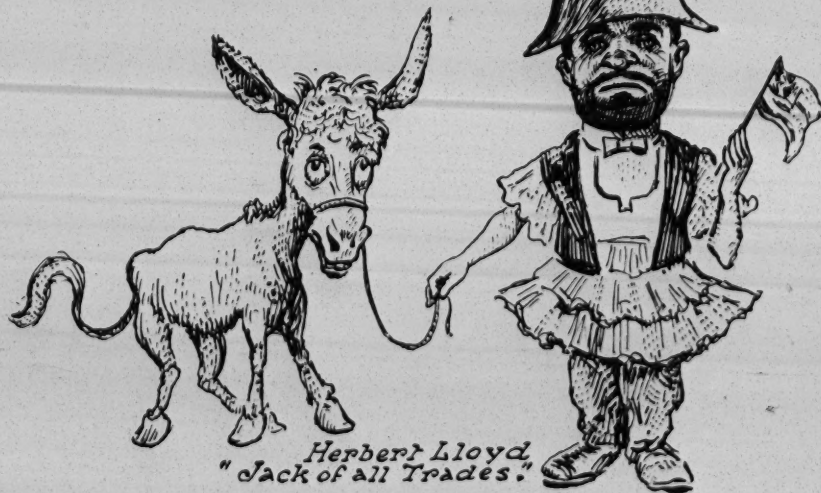 Herbert Lloyd
"Jack of all Trades."